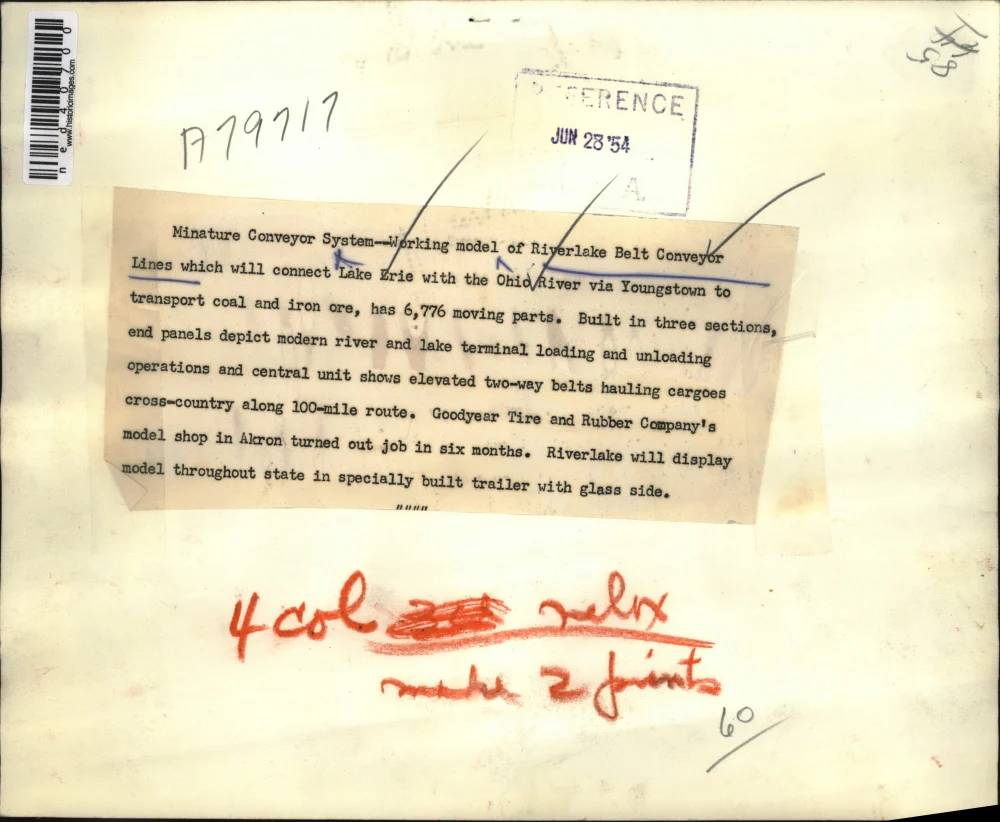 www.historicimages.com
A79717
REFERENCE
JUN 28 '54
A.
Minature Conveyor System--Working model of Riverlake Belt Conveyor
Lines which will connect Lake Erie with the Ohio River via Youngstown to
transport coal and iron ore, has 6,776 moving parts.  Built in three sections,
end panels depict modern river and lake terminal loading and unloading
operations and central unit shows elevated two-way belts hauling cargoes
cross-country along 100-mile route.  Goodyear Tire and Rubber Company's
model shop in Akron turned out job in six months.  Riverlake will display
model throughout state in specially built trailer with glass side.
""""
4 col
make 2 prints
60